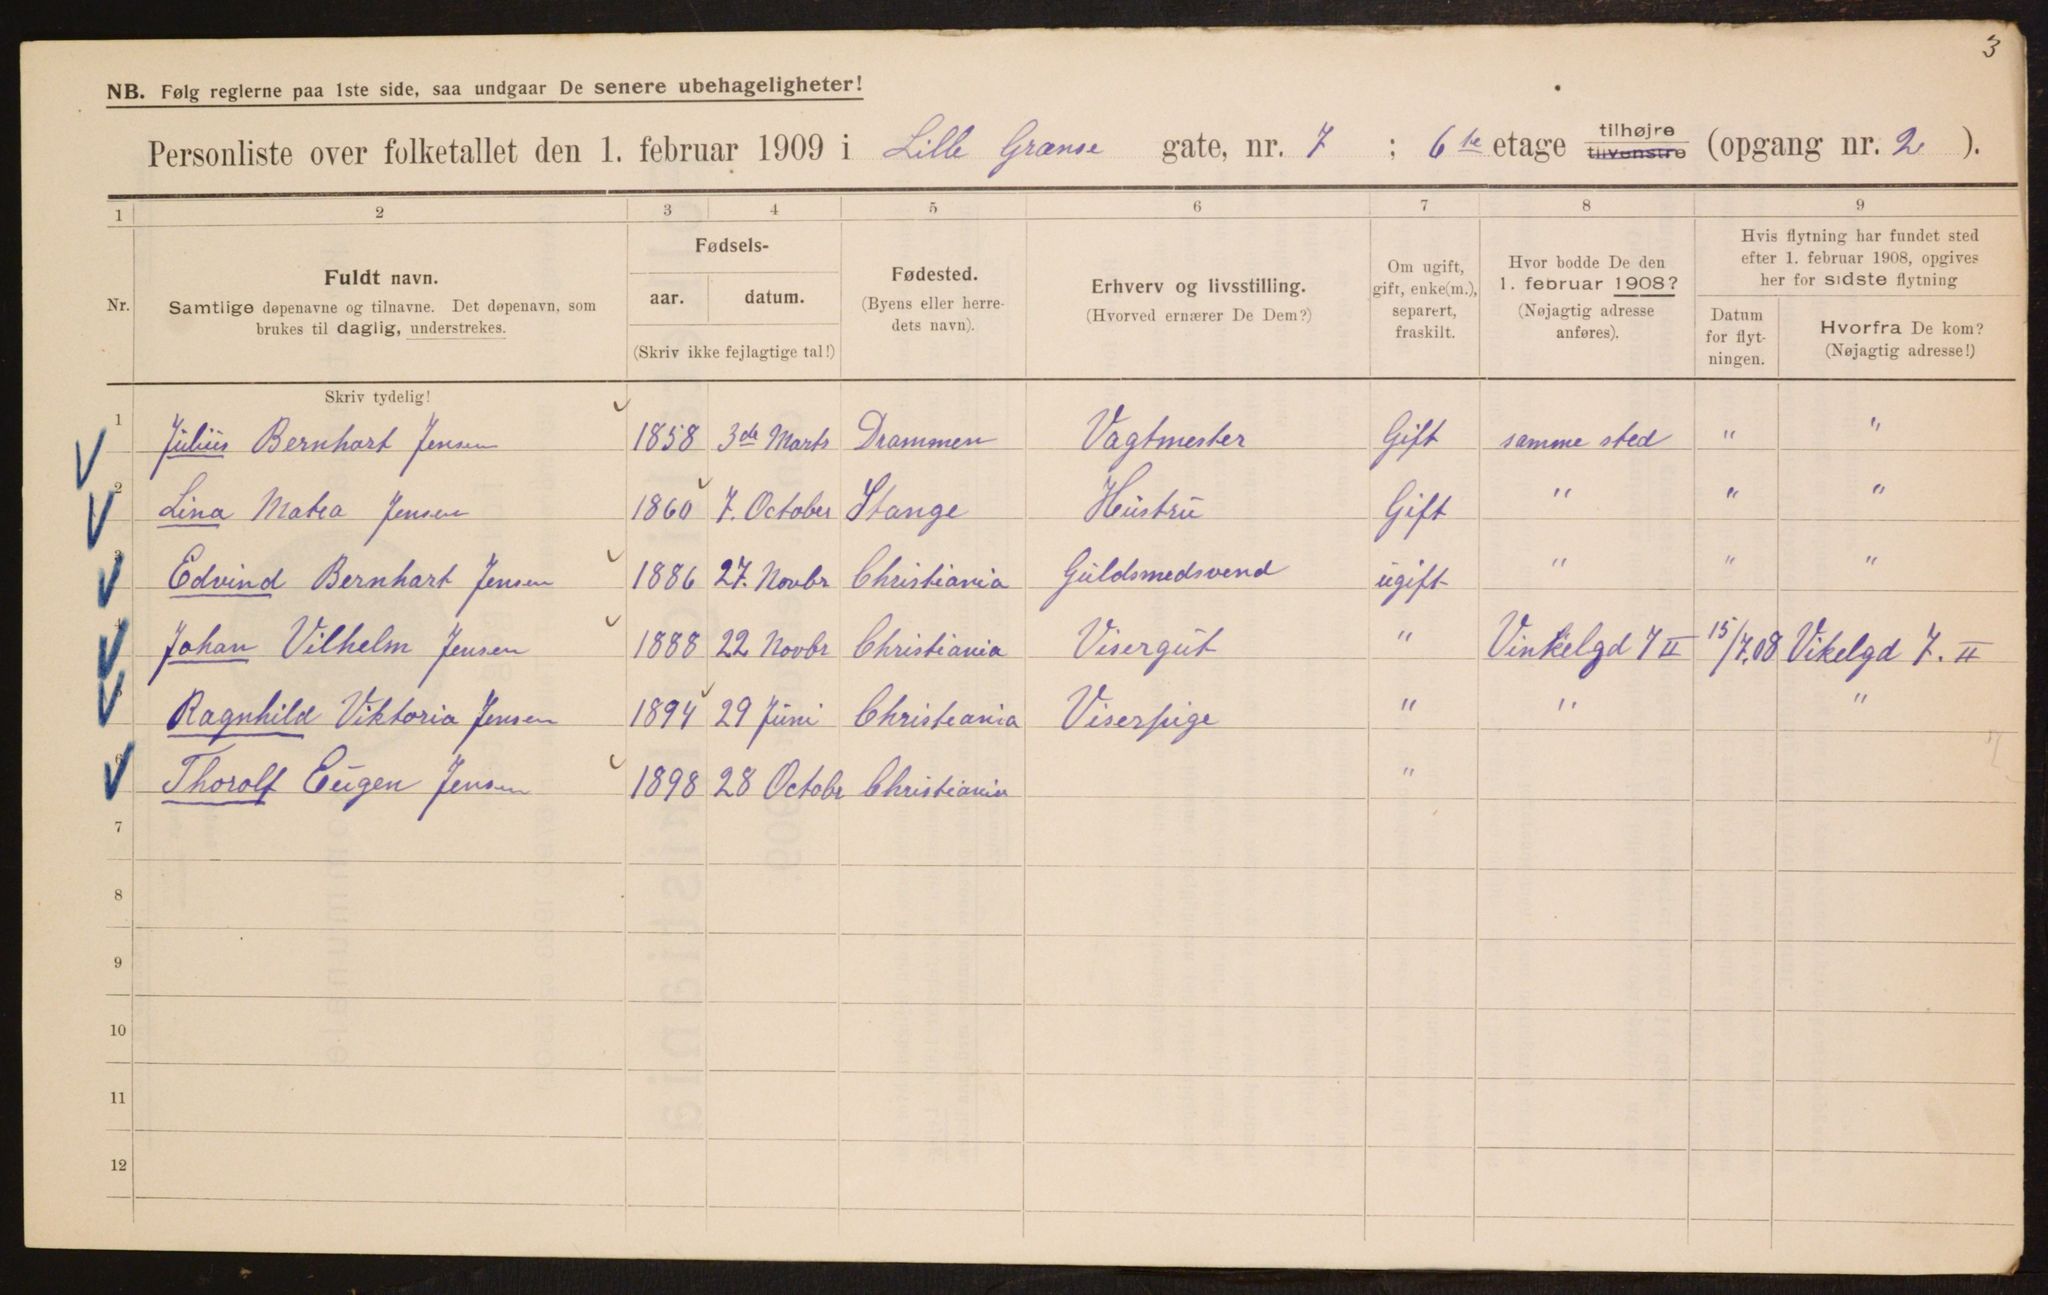 3
NB. Følg reglerne paa 1ste side, saa undgaar De senere ubehageligheter!
Personliste over folketallet den 1. februar 1909 i Lille Grænse gate, nr. 7 ; 6te etage tilhøjre tilvenstre (opgang nr. 2 ).
1 2 3 4 5 6 7 8 9
Nr. Fuldt navn. Samtlige døpenavne og tilnavne. Det døpenavn, som brukes til daglig, understrekes.
Fødsels-
aar. datum.
(Skriv ikke fejlagtige tal!)
Fødested. (Byens eller herredets navn).
Erhverv og livsstilling. (Hvorved ernærer De Dem?)
Om ugift, gift, enke(m.), separert, fraskilt.
Hvor bodde De den 1. februar 1908? (Nøjagtig adresse anføres).
Hvis flytning har fundet sted efter 1. februar 1908, opgives her for sidste flytning
Datum for flytningen.
Hvorfra De kom? (Nøjagtig adresse!)
Skriv tydelig!
1 Julius Bernhart Jensen 1858 3de Marts Drammen Vagtmester Gift samme sted " "
2 Lina Matea Jensen 1860 7. October Stange Hustru Gift " " "
3 Edvind Bernhart Jensen 1886 27. Novbr Christiania Guldsmedsvend ugift " " "
4 Johan Vilhelm Jensen 1888 22 Novbr Christiania Visergut " Vinkelgd 7 II 15/7.08 Vikelgd 7. II
5 Ragnhild Viktoria Jensen 1894 29 Juni Christeania Viserpige " " "
6 Thorolf Eugen Jensen 1898 28 Octobr Christiania "
7
8
9
10
11
12